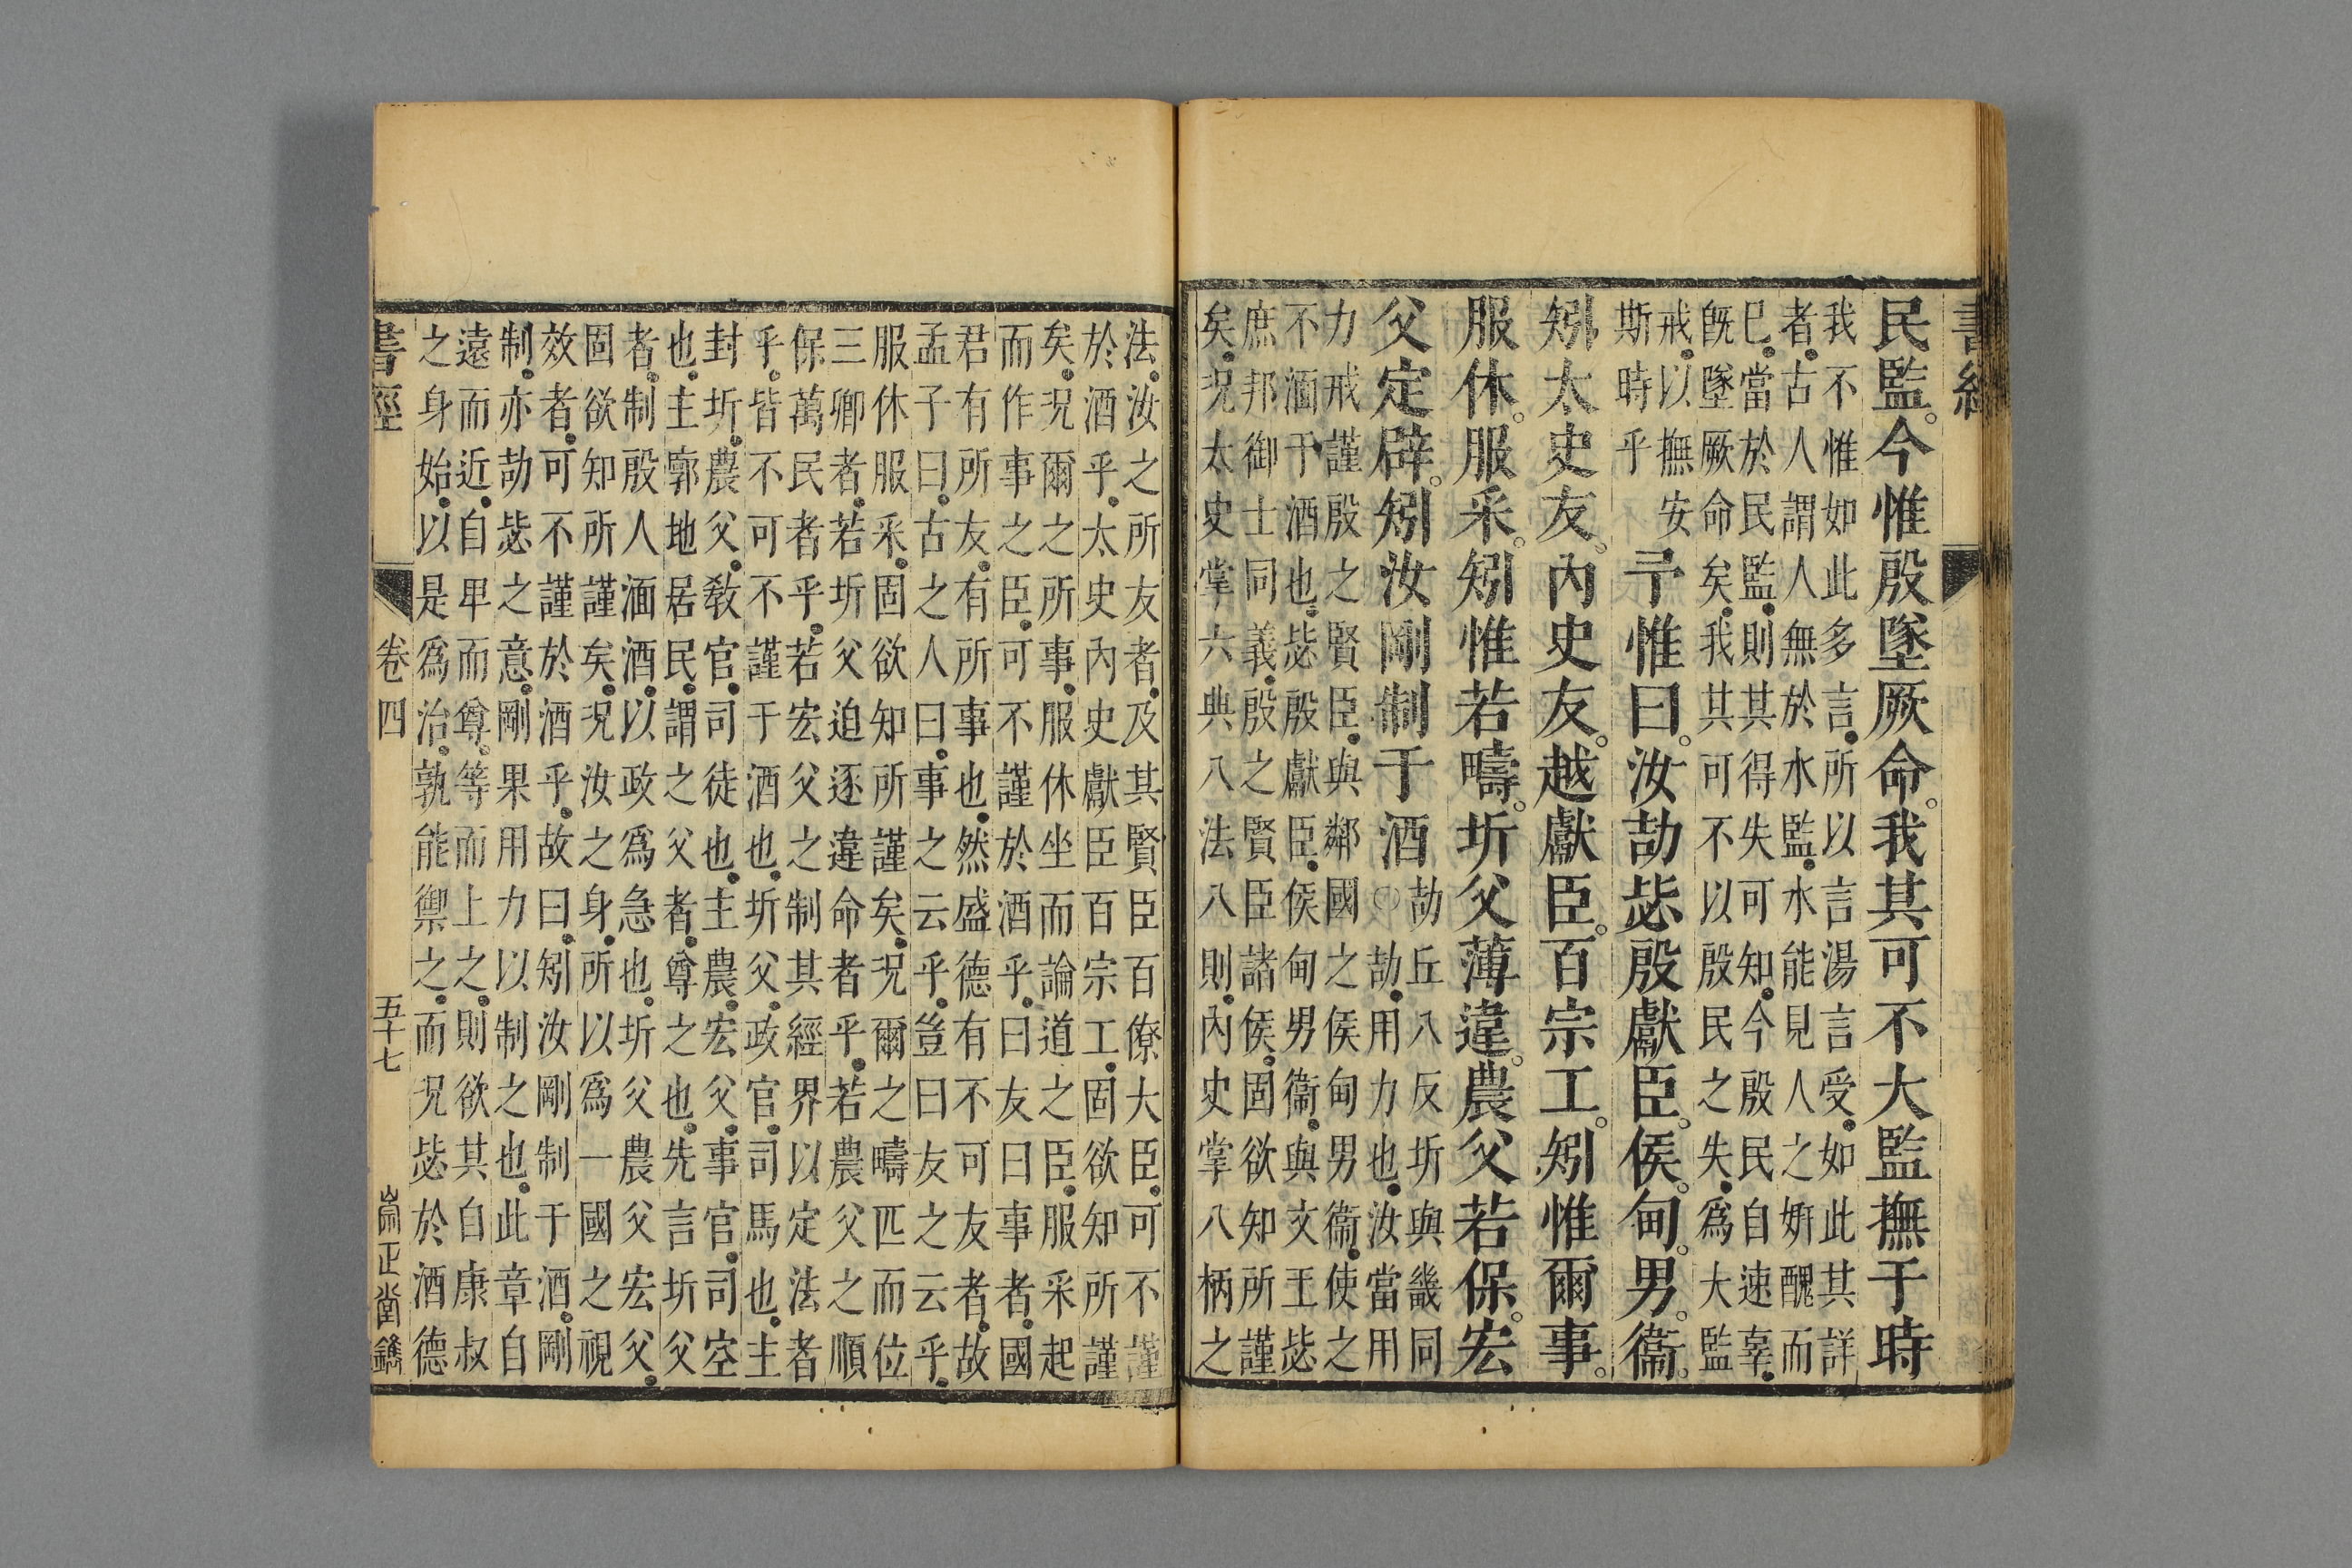 書經
民監。今惟殷墜厥命。我其可不大監撫于時
我不惟如此多言。所以言湯言受。如此其詳
者。古人謂人無於水監。水能見人之妍醜而
已。當於民監。則其得失可知。今殷民自速辜。
旣墜厥命矣。我其可不以殷民之失。爲大監
戒。以撫安
斯時乎
予惟曰。汝劼毖殷獻臣。侯。甸。男。衞。
矧太史友。內史友。越獻臣。百宗工。矧惟爾事。
服休。服采。矧惟若疇。圻父薄違。農父若保。宏
父定辟。矧汝剛制于酒
劼丘八反圻與畿同
○劼。用力也。汝當用
力戒謹殷之賢臣。與鄰國之侯甸男衞。使之
不湎于酒也。毖殷獻臣。侯甸男衞。與文王毖
庶邦御士同義。殷之賢臣諸侯。固欲知所謹
矣。況太史掌六典八法八則。內史掌八柄之
法。汝之所友者。及其賢臣百僚大臣。可不謹
於酒乎。太史內史獻臣百宗工。固欲知所謹
矣。況爾之所事。服休坐而論道之臣。服采起
而作事之臣。可不謹於酒乎。曰友曰事者。國
君有所友。有所事也。然盛德有不可友者。故
孟子曰。古之人曰。事之云乎。豈曰友之云乎。
服休服采。固欲知所謹矣。況爾之疇匹而位
三卿者。若圻父迫逐違命者乎。若農父之順
保萬民者乎。若宏父之制其經界以定法者
乎。皆不可不謹于酒也。圻父。政官。司馬也。主
封圻。農父。敎官。司徒也。主農。宏父。事官。司空
也。主廓地居民。謂之父者。尊之也。先言圻父
者。制殷人湎酒。以政爲急也。圻父農父宏父。
固欲知所謹矣。況汝之身。所以爲一國之視
效者。可不謹於酒乎。故曰。矧汝剛制于酒。剛
制。亦劼毖之意。剛果用力以制之也。此章自
遠而近。自卑而尊。等而上之。則欲其自康叔
之身始。以是爲治。孰能禦之。而況毖於酒德
書經
卷四
五十七
崇正堂鐫